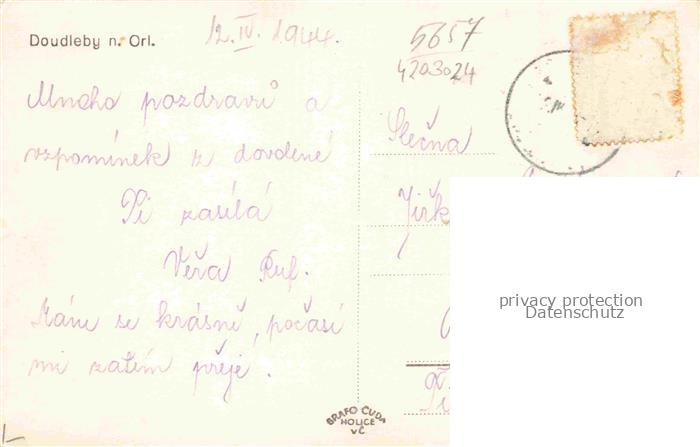 Doudleby n. Orl.
12.IV. 1944.
5657
4203024
Mnoho pozdravů a
vzpomínek z dovolené
Ti zasílá
Věra Ruf.
Máme se krásně, počasí
mi zatím přeje.
Slečna
Jiřk
privacy protection
Datenschutz
BRAFO ČUDA
HOLICE
v Č.